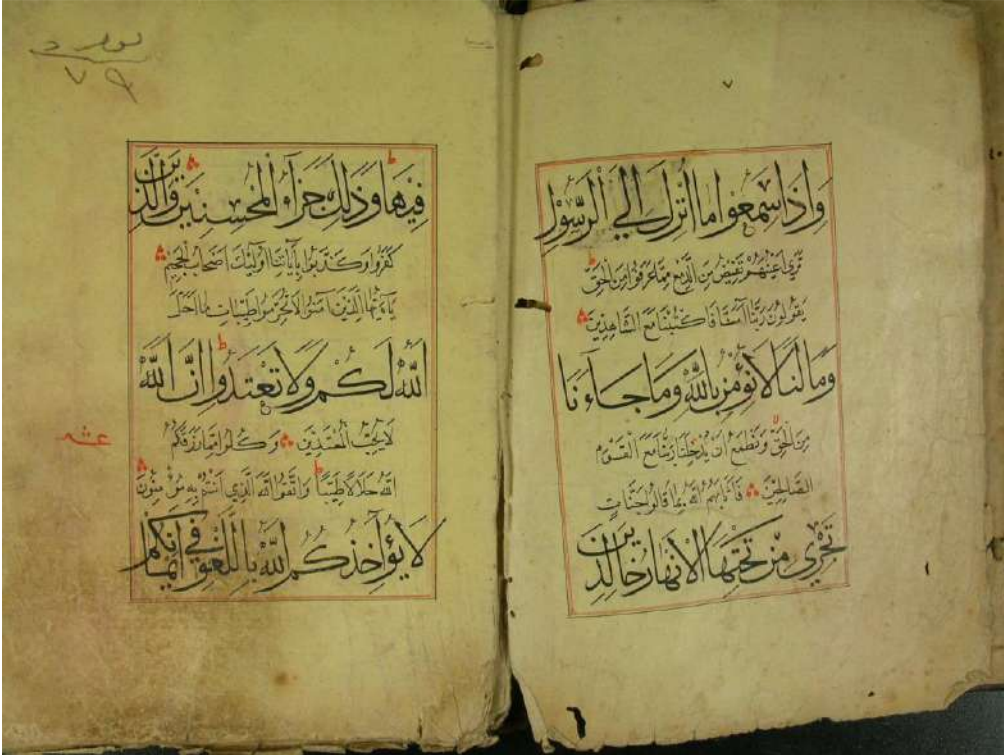 ٧
وَاِذَا سَمِعُوا مَا اُنْزِلَ اِلَي الرَّسُوْلِ
تَرٰي اَعْيُنَهُمْ تَفِيْضُ مِنَ الدَّمْعِ مِمَّا عَرَفُوْا مِنَ الْحَقِّ
يَقُوْلُوْنَ رَبَّنَا آمَنَّا فَاكْتُبْنَا مَعَ الشَّاهِدِيْنَ
وَمَا لَنَا لَا نُؤْمِنُ بِاللّٰهِ وَمَا جَاءَنَا
مِنَ الْحَقِّ وَنَطْمَعُ اَنْ يُدْخِلَنَا رَبُّنَا مَعَ الْقَوْمِ
الصَّالِحِيْنَ فَاَثَابَهُمُ اللّٰهُ بِمَا قَالُوا جَنَّاتٍ
تَجْرِيْ مِنْ تَحْتِهَا الْاَنْهَارُ خَالِدِيْنَ
٧٩
فِيْهَا وَذٰلِكَ جَزَآءُ الْمُحْسِنِيْنَ وَالَّذِيْنَ
كَفَرُوْا وَكَذَّبُوْا بِآيَاتِنَا اُولٰٓئِكَ اَصْحَابُ الْجَحِيْمِ
يَآ اَيُّهَا الَّذِيْنَ آمَنُوْا لَا تُحَرِّمُوْا طَيِّبَاتِ مَا اَحَلَّ
اَللّٰهُ لَكُمْ وَلَا تَعْتَدُوْا اِنَّ اللّٰهَ
لَا يُحِبُّ الْمُعْتَدِيْنَ وَكُلُوْا مِمَّا رَزَقَكُمُ
اللّٰهُ حَلَالًا طَيِّبًا وَاتَّقُوا اللّٰهَ الَّذِيْ اَنْتُمْ بِهِ مُؤْمِنُوْنَ
لَا يُؤَاخِذُكُمُ اللّٰهُ بِاللَّغْوِ فِيْ اَيْمَانِكُمْ